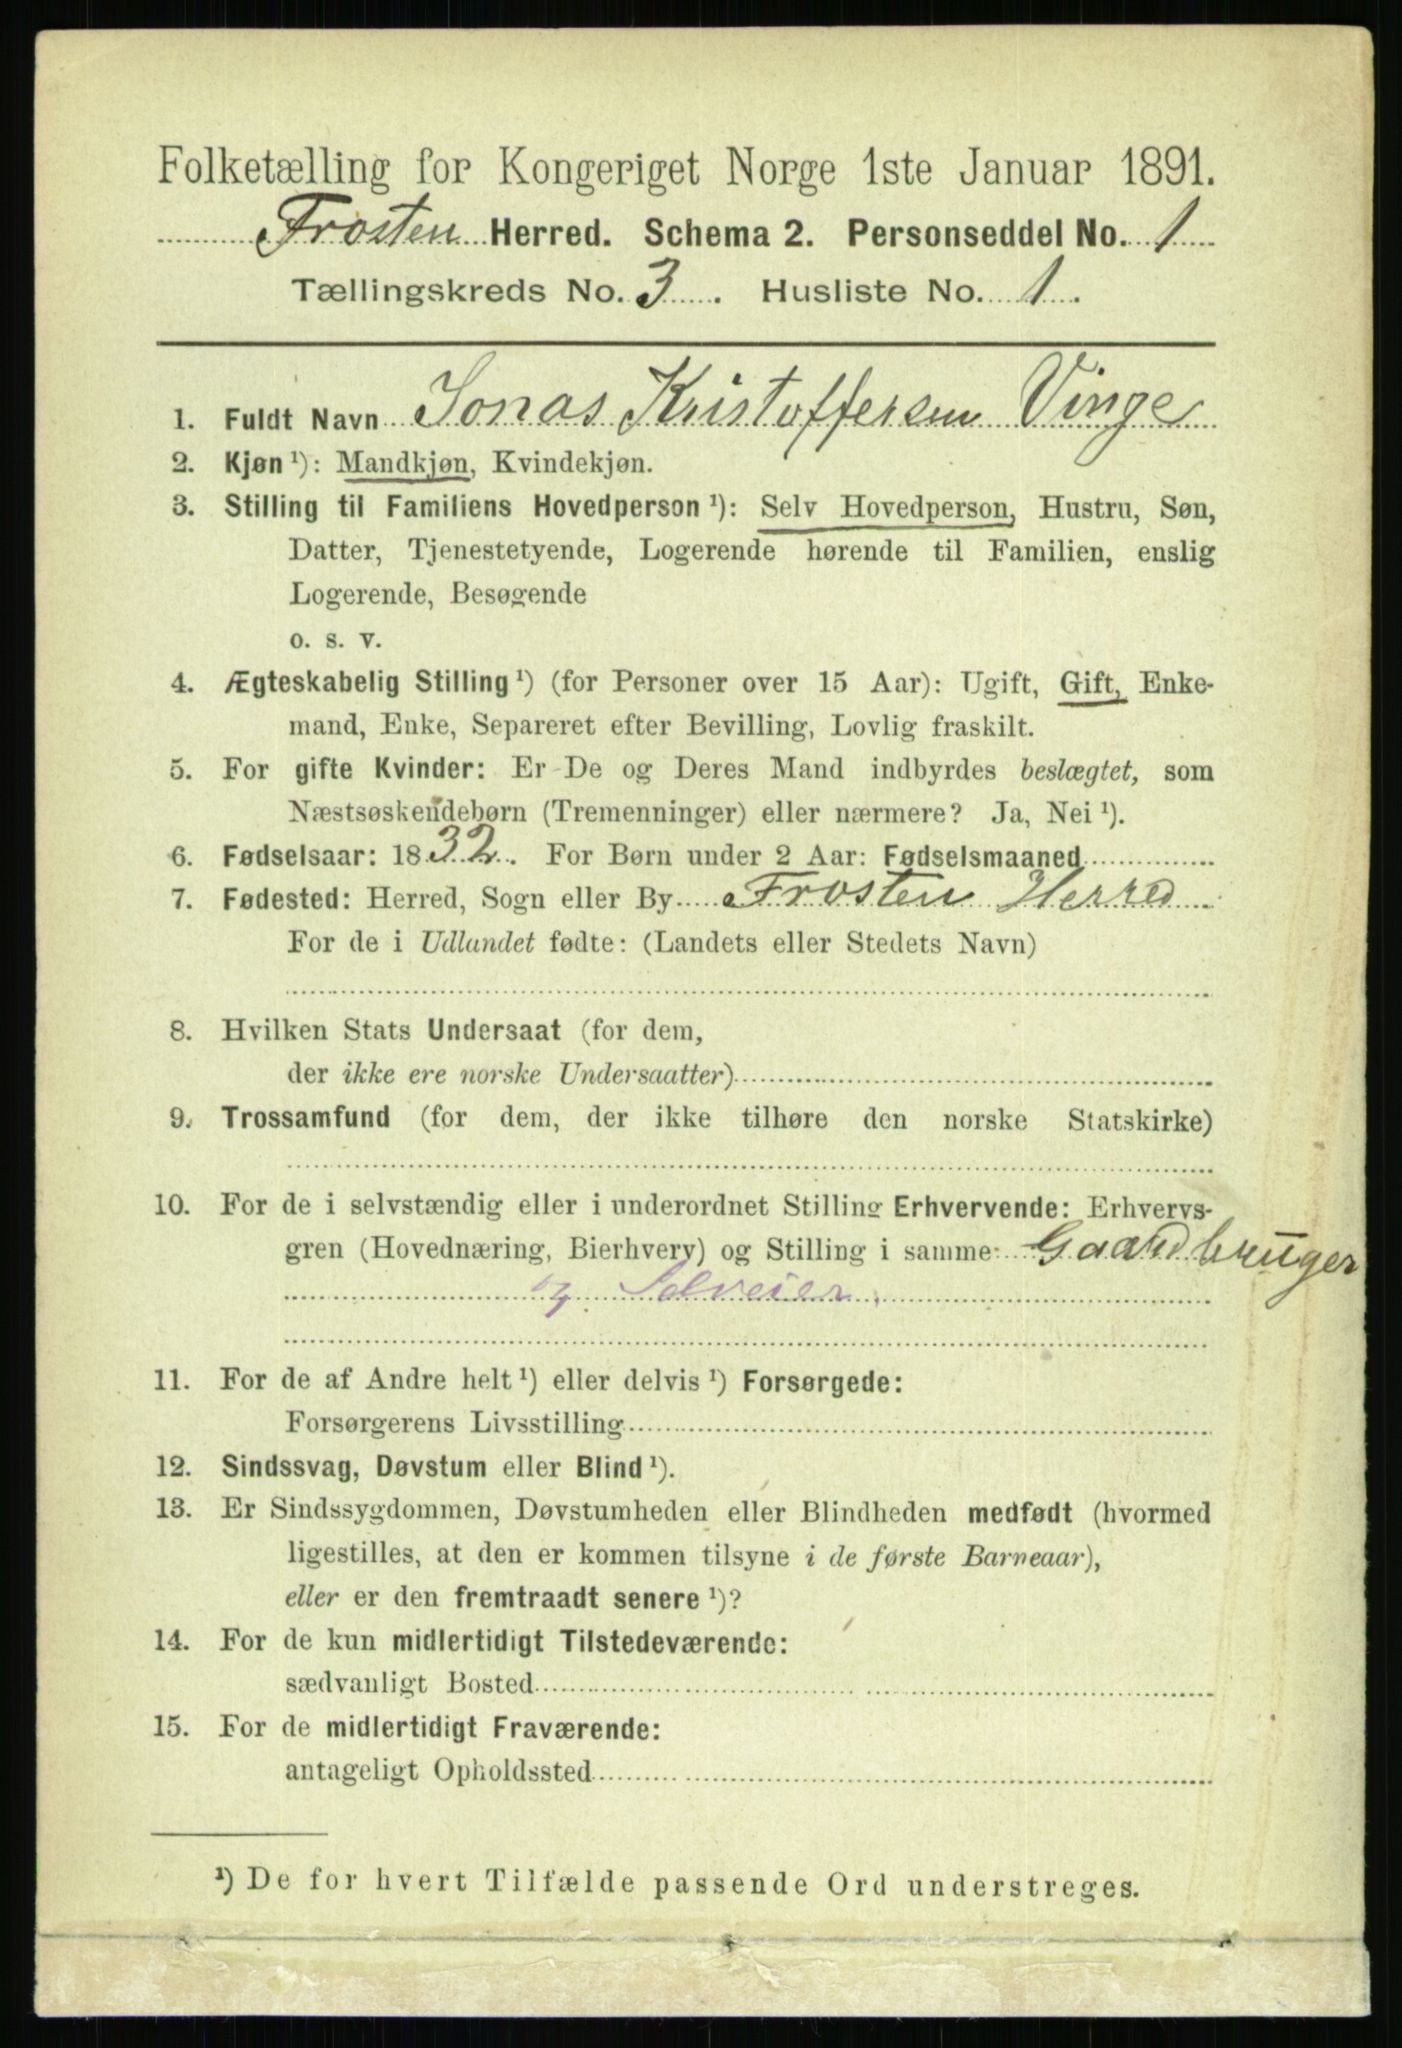 Folketælling for Kongeriget Norge 1ste Januar 1891.
Frosten Herred. Schema 2. Personseddel No. 1
Tællingskreds No. 3. Husliste No. 1.
1. Fuldt Navn Jonas Kristoffersen Vinge
2. Kjøn ¹): Mandkjøn, Kvindekjøn.
3. Stilling til Familiens Hovedperson ¹): Selv Hovedperson, Hustru, Søn,
Datter, Tjenestetyende, Logerende hørende til Familien, enslig
Logerende, Besøgende
o. s. v.
4. Ægteskabelig Stilling ¹) (for Personer over 15 Aar): Ugift, Gift, Enke-
mand, Enke, Separeret efter Bevilling, Lovlig fraskilt.
5. For gifte Kvinder: Er De og Deres Mand indbyrdes beslægtet, som
Næstsøskendebørn (Tremenninger) eller nærmere? Ja, Nei ¹).
6. Fødselsaar: 1832. For Børn under 2 Aar: Fødselsmaaned
7. Fødested: Herred, Sogn eller By Frosten Herred
For de i Udlandet fødte: (Landets eller Stedets Navn)
8. Hvilken Stats Undersaat (for dem,
der ikke ere norske Undersaatter)
9. Trossamfund (for dem, der ikke tilhøre den norske Statskirke)
10. For de i selvstændig eller i underordnet Stilling Erhvervende: Erhvervs-
gren (Hovednæring, Bierhverv) og Stilling i samme Gaardbruger
og Selveier.
11. For de af Andre helt ¹) eller delvis ¹) Forsørgede:
Forsørgerens Livsstilling
12. Sindssvag, Døvstum eller Blind ¹).
13. Er Sindssygdommen, Døvstumheden eller Blindheden medfødt (hvormed
ligestilles, at den er kommen tilsyne i de første Barneaar),
eller er den fremtraadt senere ¹)?
14. For de kun midlertidigt Tilstedeværende:
sædvanligt Bosted
15. For de midlertidigt Fraværende:
antageligt Opholdssted
¹) De for hvert Tilfælde passende Ord understreges.